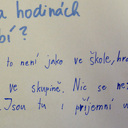 a hodinách
bí?
to není jako ve škole, hra
ve skupině. Nic se ne
Jsou tu i příjemní u